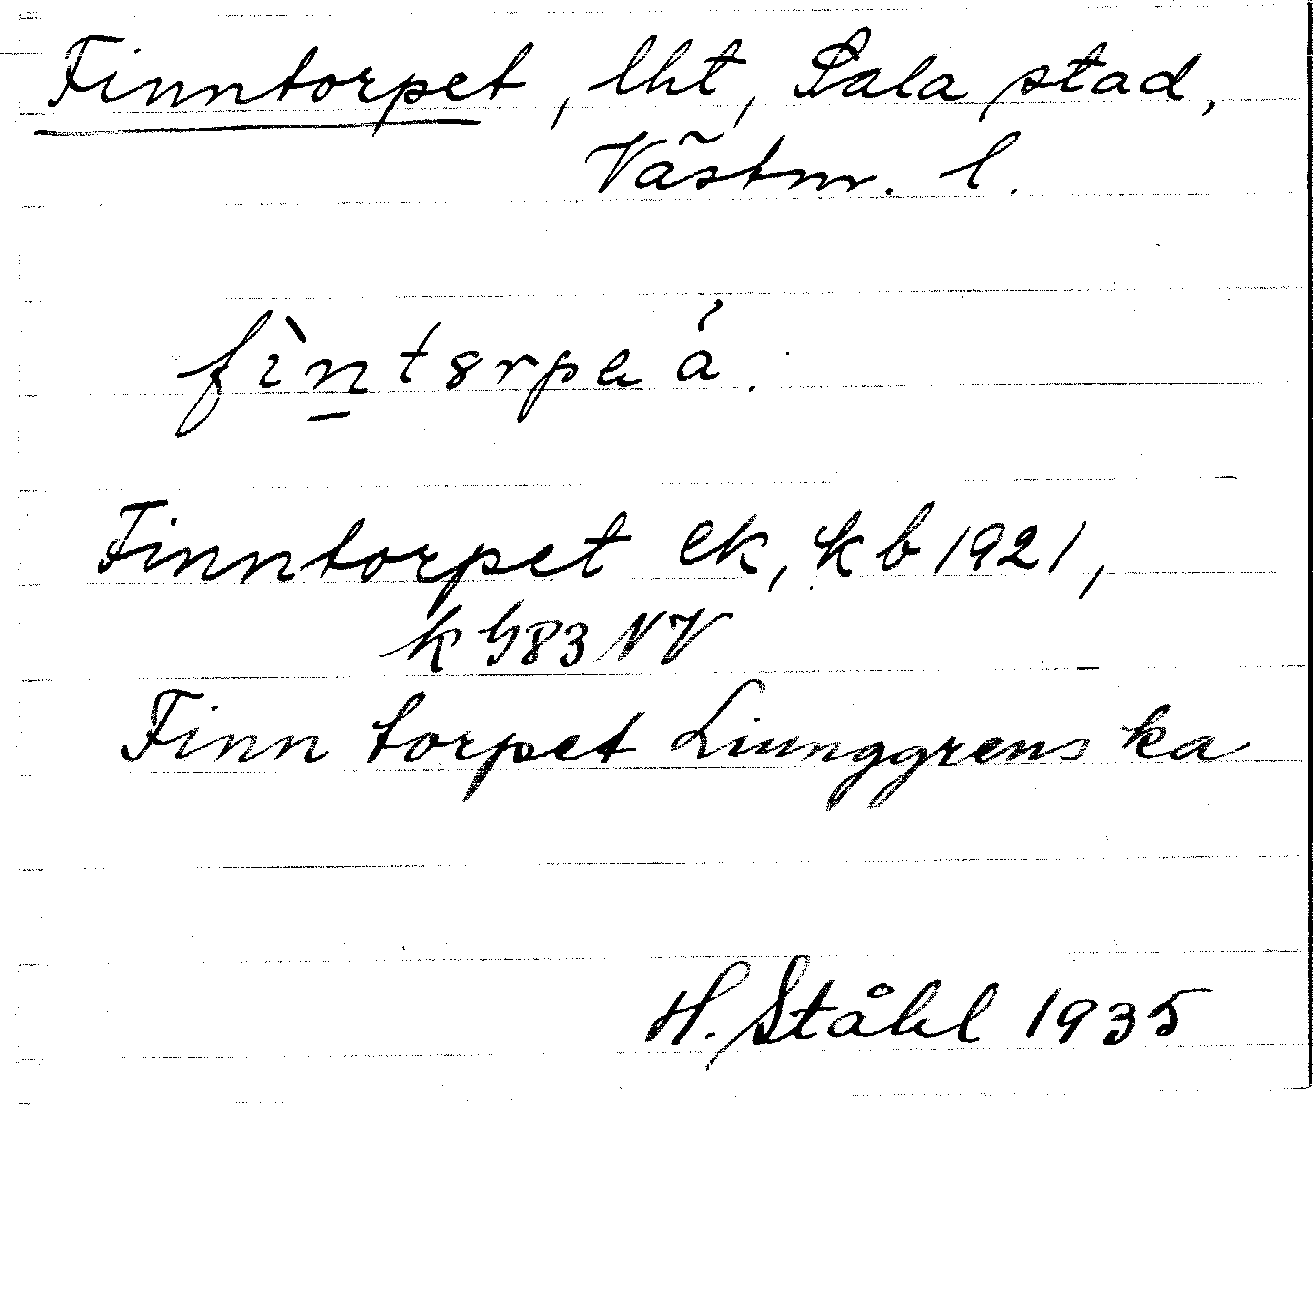 Finntorpet, lht, Sala stad,
Västm. l.
fìn̲tərpa á.
Finntorpet ek, kb 1921,
k G83 NV
Finn torpet Liunggrens ka
H. Ståhl 1935